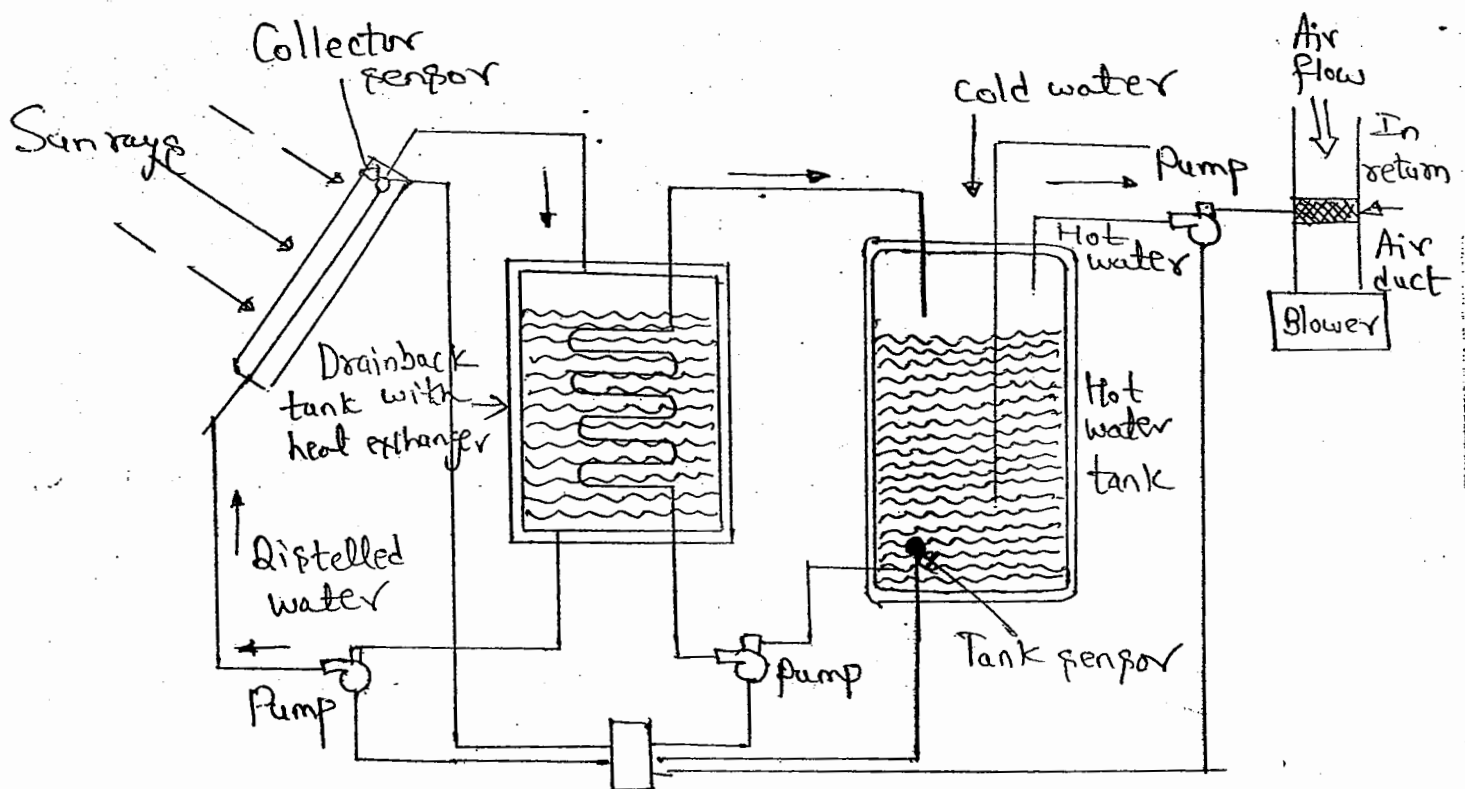 Collector
sensor
Sun rays
Air
flow
Cold water
In
return
Pump
Hot
water
Air
duct
Blower
Drainback
tank with
heat exhanger
Hot
water
tank
Distelled
water
Tank sensor
Pump
Pump